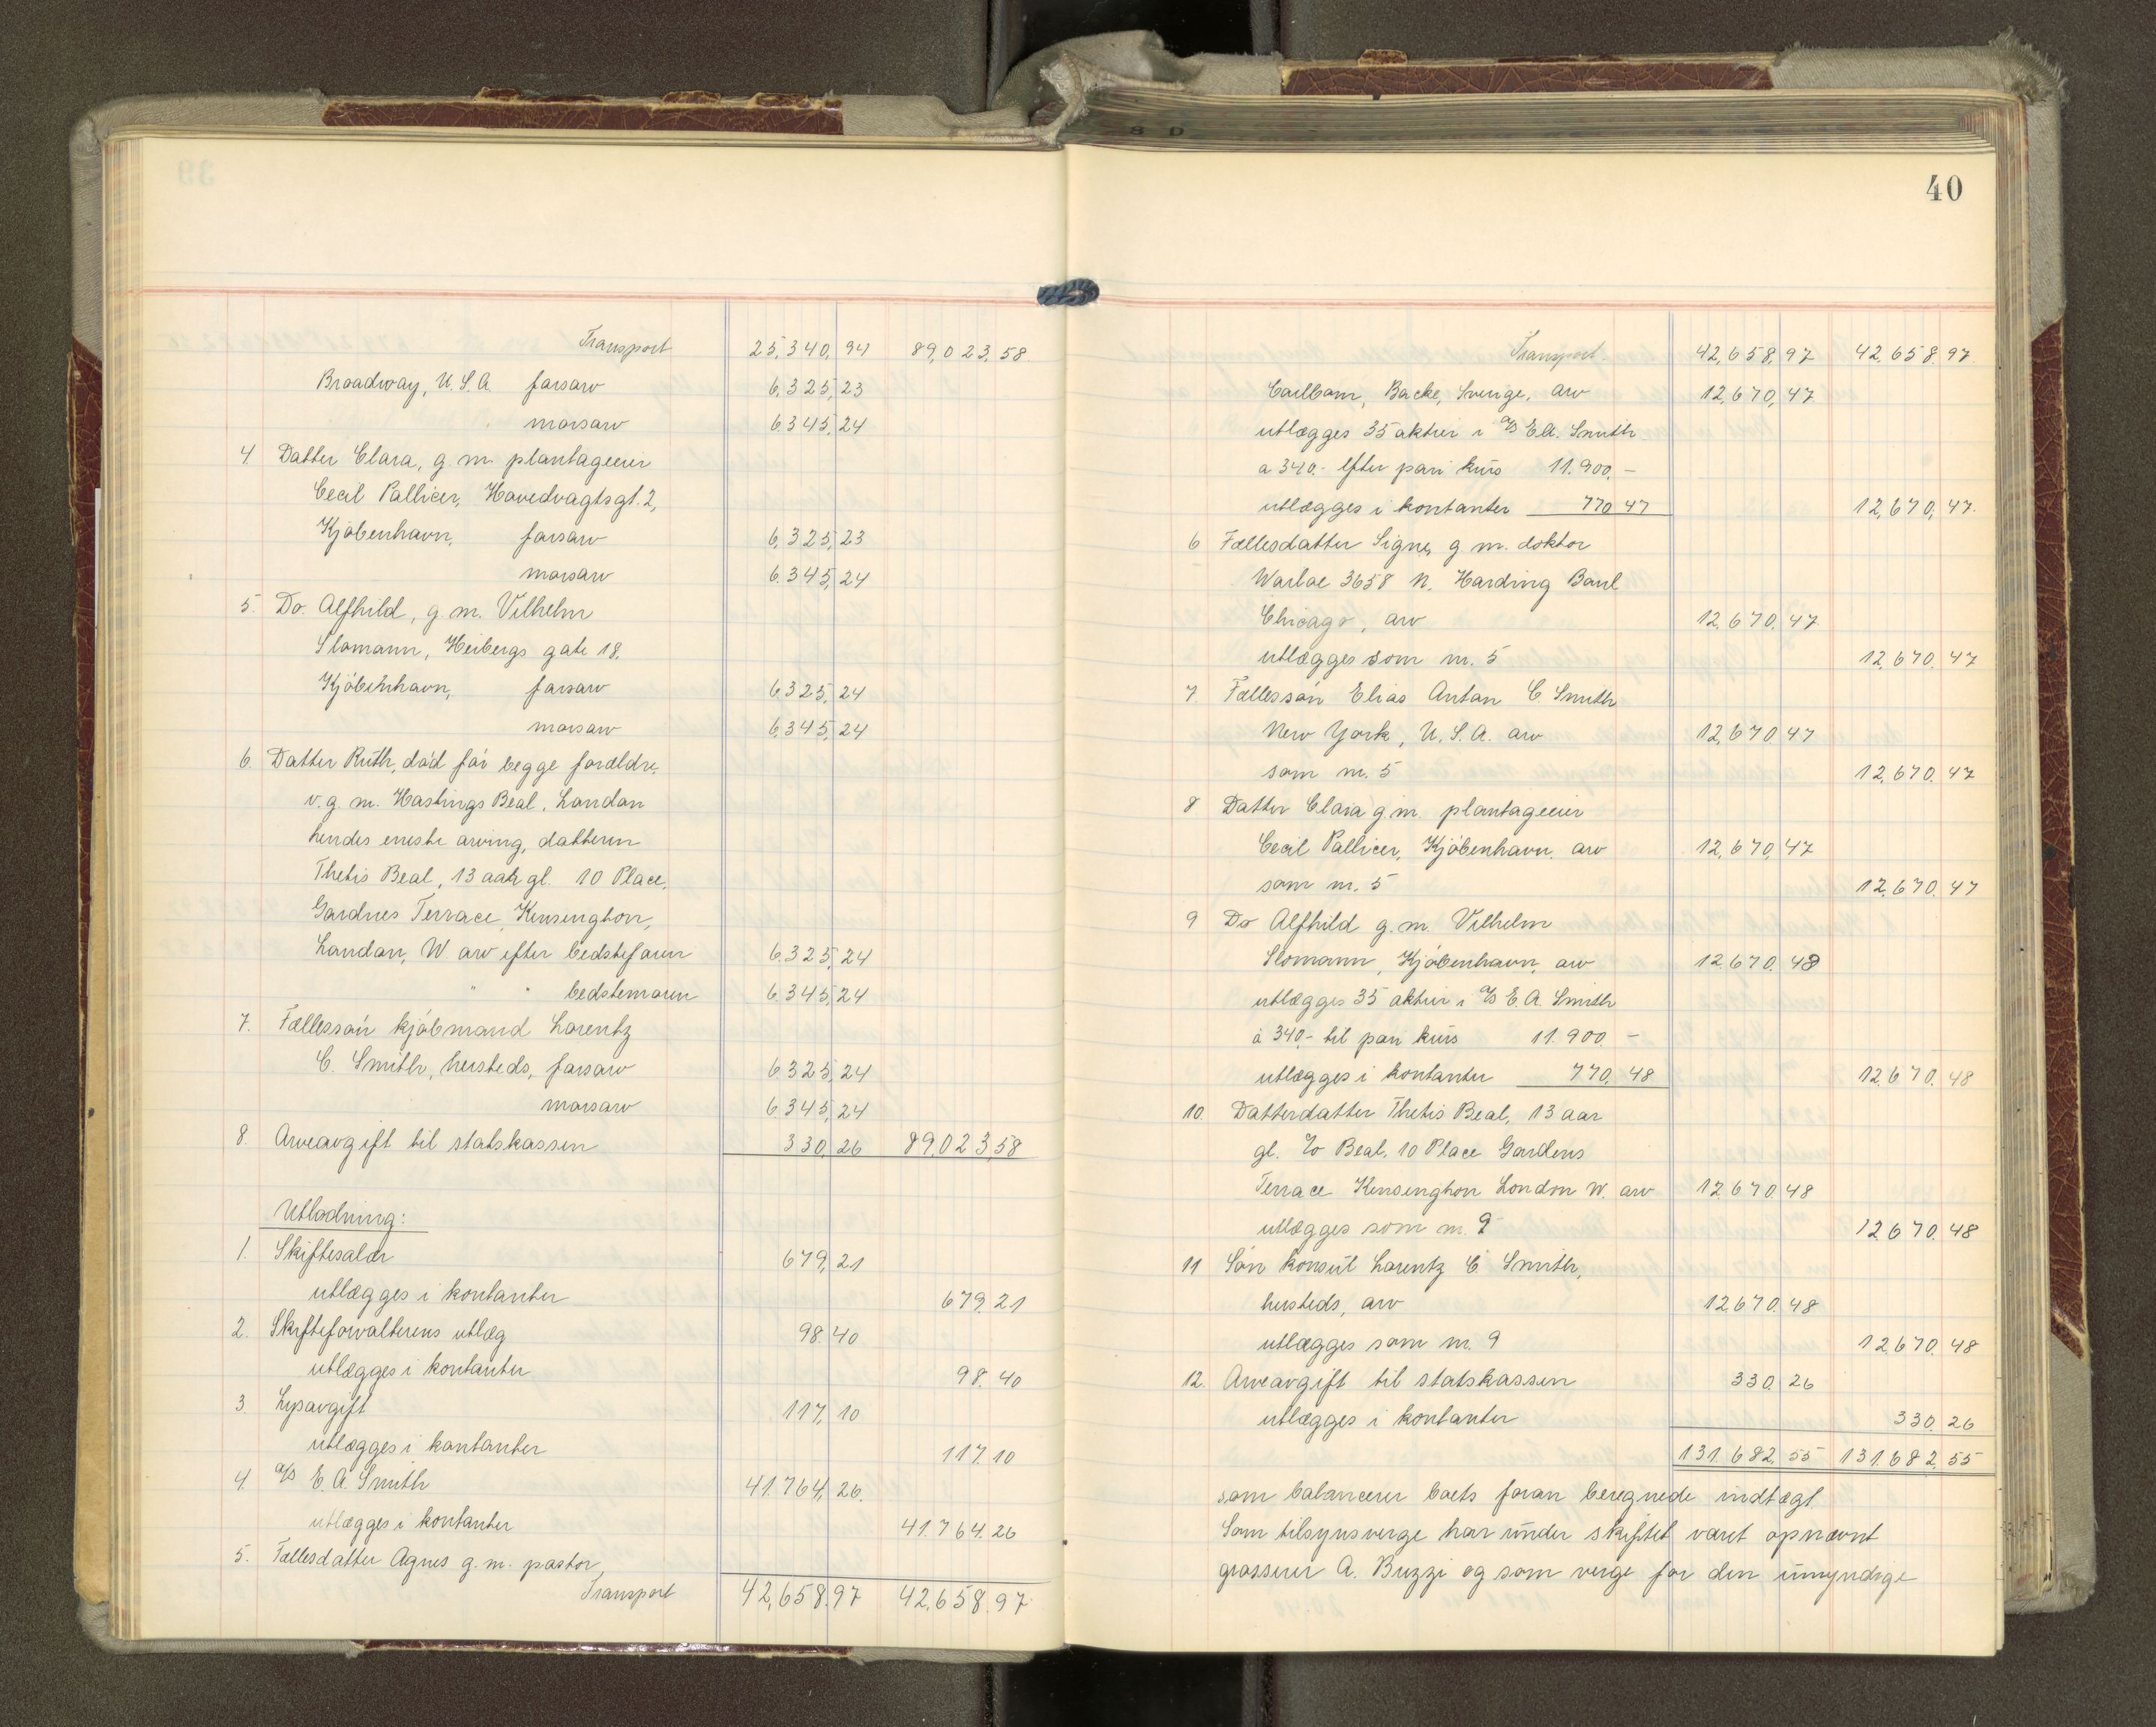 Transport 25,340,94 89,023,58
Broadway, U.S.A. farsarv 6,325,23
morsarv 6.345,24
4. Datter Clara, g. m. plantageeier
Cecil Pallicer, Hovedvagtsgt. 2,
Kjøbenhavn, farsarv 6,325,23
morsarv 6.345,24
5. Do. Alfhild, g. m. Vilhelm
Slomann, Heibergs gate 18,
Kjøbenhavn, farsarv 6.325,24
morsarv 6,345,24
6. Datter Ruth, død før begge forældre,
v. g. m. Hastings Beal, London
hendes eneste arving, datteren
Thetis Beal, 13 aar gl. 10 Place,
Gardnes Terrace, Kensington,
London, W arv efter bedstefaren 6.325,24
" " bedstemoren 6.345,24
7. Fællessøn kjøbmand Lorentz
C. Smith, hersteds, farsarv 6.325,24
morsarv 6.345,24
8. Arveavgift til statskassen 330,26 89,023,58
Utlodning:
1. Skiftesalær 679,21
utlægges i kontanter 679.21
2. Skifteforvalterens utlæg 98.40
utlægges i kontanter 98.40
3. Lysavgift 117,10
utlægges i kontanter 117.10
4. a/s E. A. Smith 41.764,26.
utlægges i kontanter 41.764.26
5. Fællesdatter Agnes g. m. pastor
Transport 42,658.97 42,658.97
40
Transport. 42,658,97 42,658.97
Carlbom, Backe, Sverige, arv 12,670,47
utlægges 35 aktier i a/s E.A. Smith
a 340.- efter pari kurs 11.900,-
utlægges i kontanter 770 47 12,670,47.
6 Fællesdatter Signe, g m. doktor
3658 N. Harding
Chicago, arv 12.670.47
utlægges som nr. 5 12,670.47
7. Fællessøn Elias Anton C. Smith
New York, U.S.A. arv 12,670 47
som nr. 5 12,670.47
8 Datter Clara g.m. plantageeier
Cecil Pallicer, Kjøbenhavn, arv 12,670,47
som nr. 5 12.670.47
9 Do Alfhild g.m. Vilhelm
Slomann, Kjøbenhavn, arv 12670.48
utlægges 35 aktier i a/s E.A. Smith
à 340,- til pari kurs 11.900.-
utlægges i kontanter 770.48 12.670.48
10 Datterdatter Thetis Beal, 13 aar
gl. c/o Beal, 10 Place Gardens
Terrace Kensington London W. arv 12670.48
utlægges som nr. 9 12670.48
11 Søn konsul Lorentz C. Smith,
hersteds, arv 12670.48
utlægges som nr. 9 12670.48
12. Arveavgift til statskassen 330.26
utlægges i kontanter 330.26
131.682,55 131.682,55
som balancerer boets foran beregnede indtægt
Som tilsynsverge har under skiftet været opnævnt
grosserer A. Buzzi og som verge for den umyndige